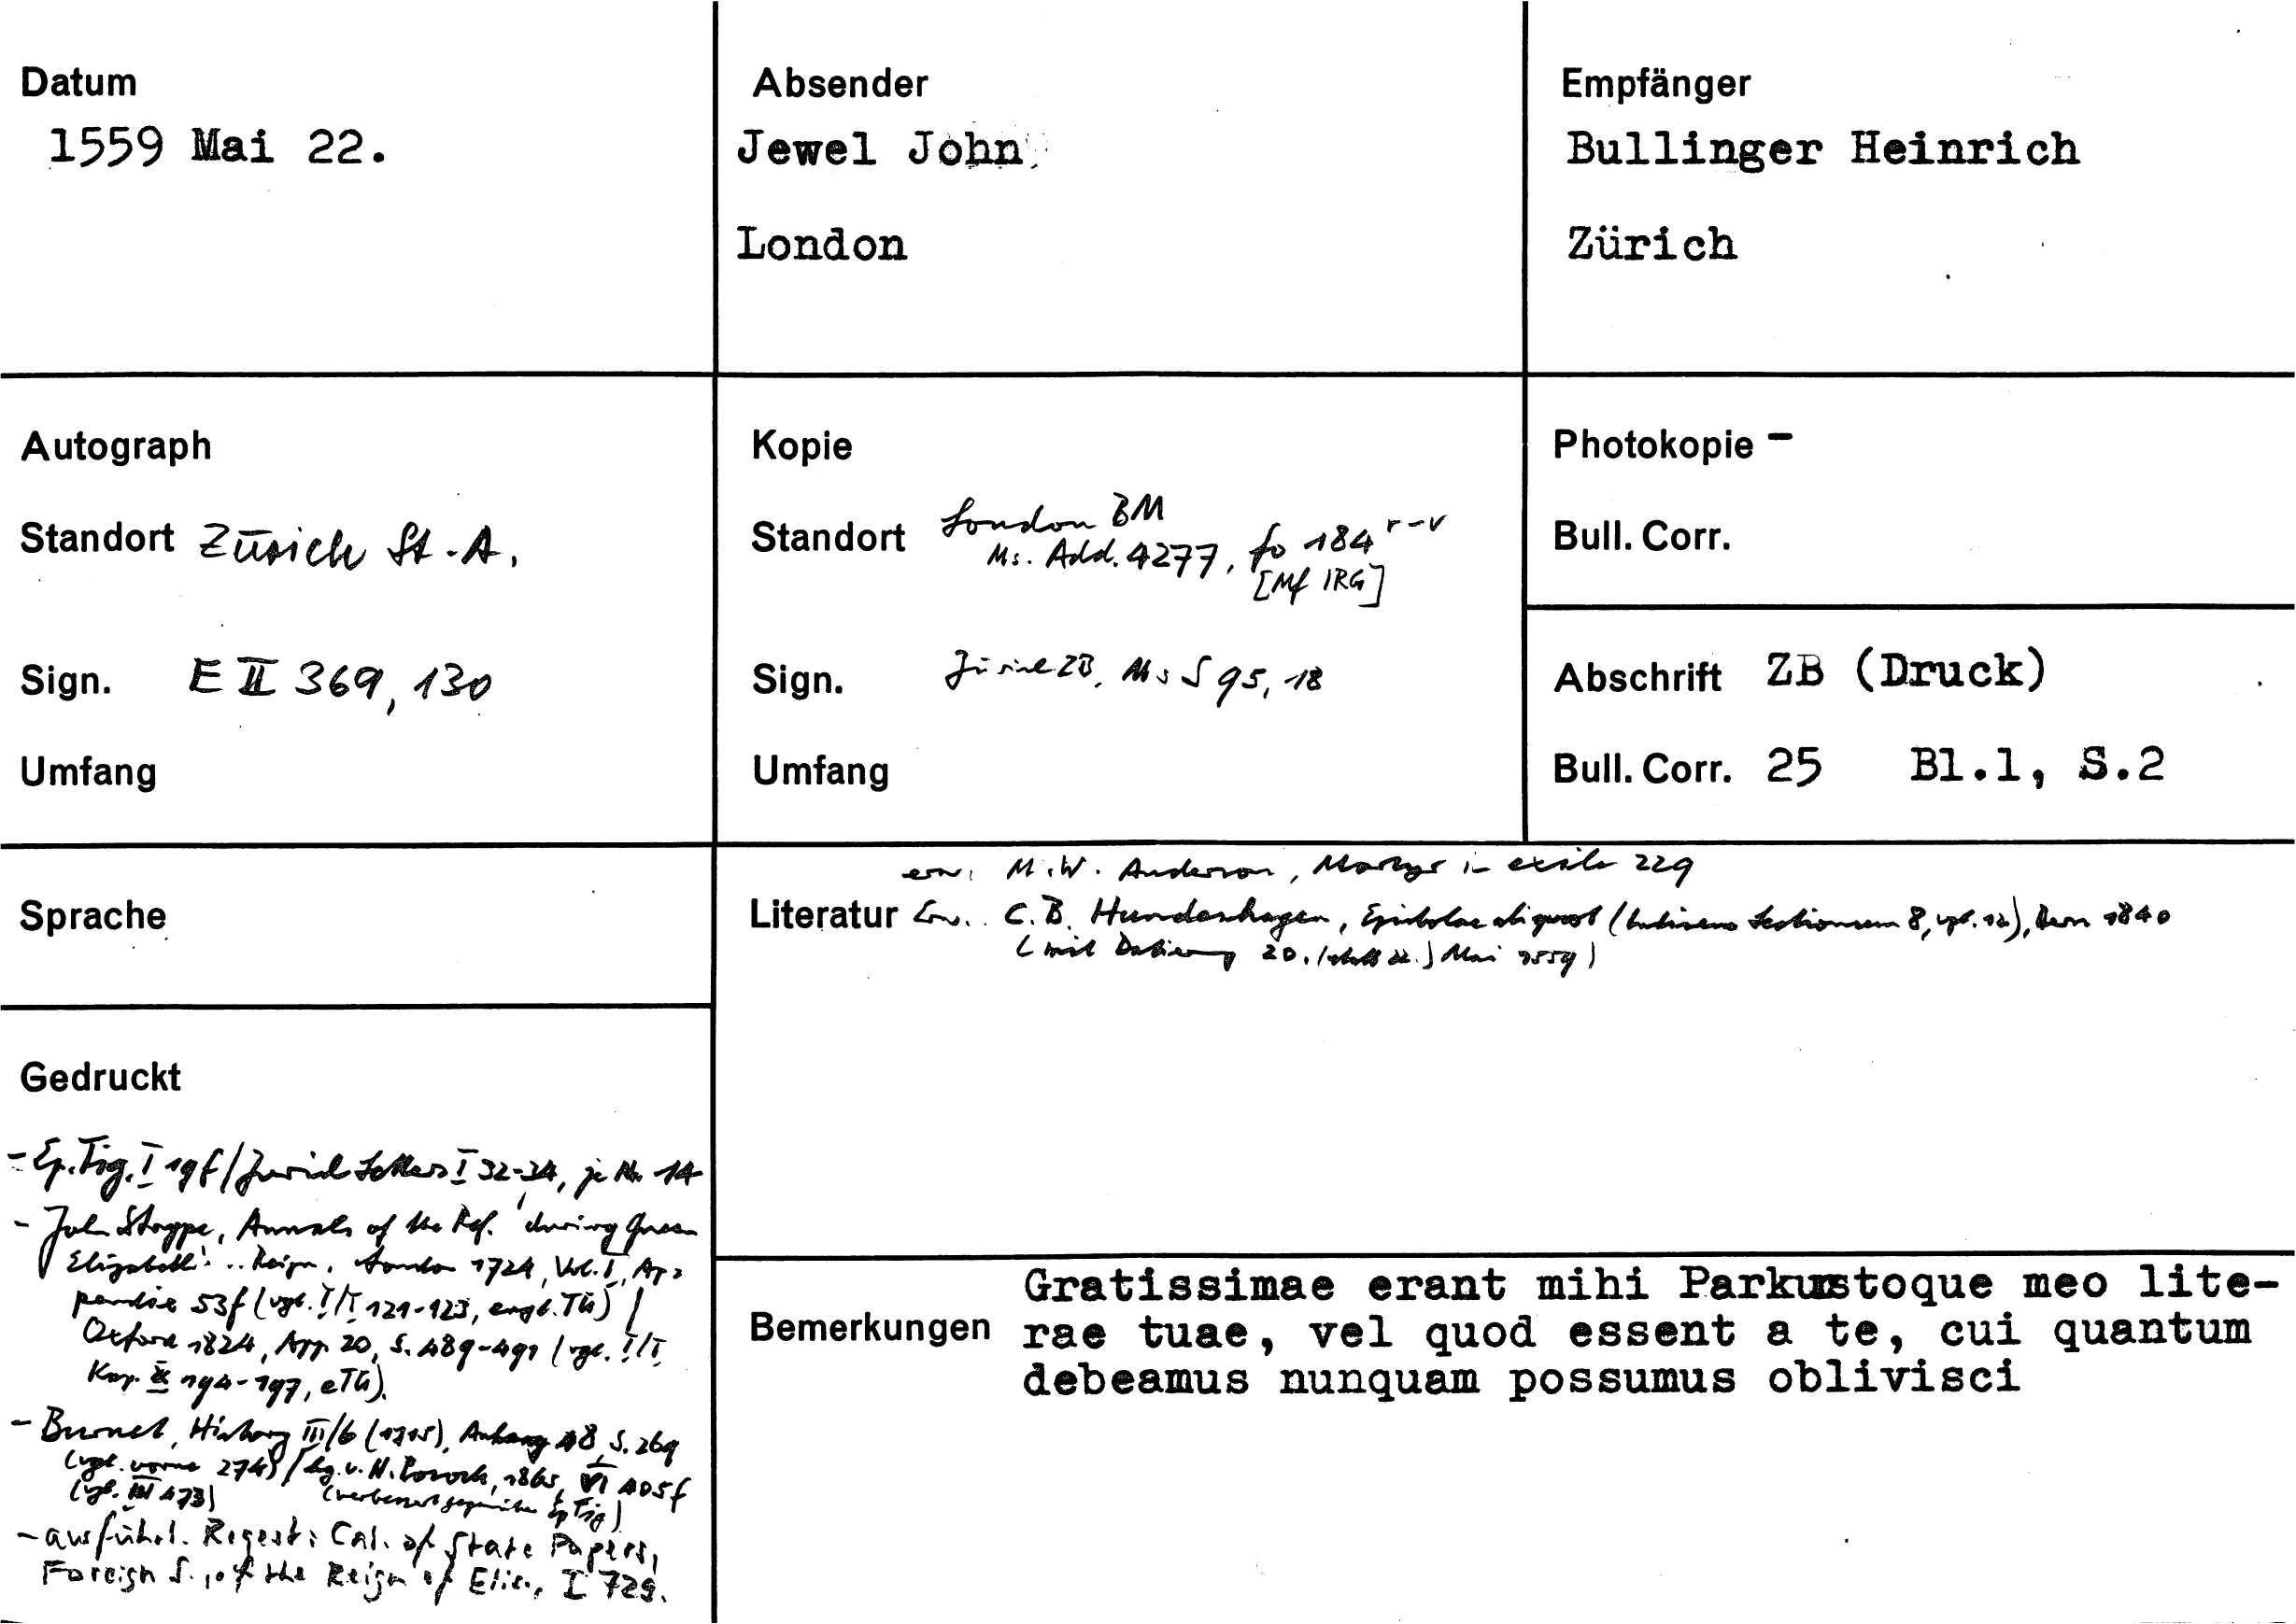 Datum
1559 Mai 22.
Absender
Jewel John
London
Empfänger
Bullinger Heinrich
Zürich
Autograph
Standort Zürich St.-A.
Sign. E II 369, 130
Umfang
Kopie
Standort London BM
Ms. Add. 4277, fo 184 r-v
[Mf IRG]
Sign. Zürich ZB, Ms S 95, 18
Umfang
Photokopie -
Bull. Corr.
Abschrift ZB (Druck)
Bull. Corr. 25 Bl.1, S.2
Sprache
erw. M.W. Anderson, Martyr in exile 229
Literatur Erw. C.B. Hundeshagen, Epistolae aliquot (Indicens Lectionum 8, vgl. 12), Bern 1840
(mit Datierung 20. (statt 22.) Mai 1559)
Gedruckt
- Ep. Tig. I 19f / Zurich Letters I 32-34, je Nr. 14
- John Strype, Annals of the Ref. during Queen
Elizabeth's .. Reign, London 1724, Vol. I, Ap=
pendix 53f (vgl. I/I 121-123, engl. Tü) /
Oxford 1824, App. 20, S. 489-491 (vgl. I/I,
Kap. 194-197, eTü).
- Burnet, History III/6 (1715), Anhang 48, S. 269
(vgl. vorne 274) / hg. v. N. Pocock, 1865, VI 405f
(vgl. III 473) (verbessert gegenüber Ep Tig)
- ausführl. Regest: Cal. of State Papers,
Foreign S., of the Reign of Eliz., I 729.
Bemerkungen
Gratissimae erant mihi Parkustoque meo lite-
rae tuae, vel quod essent a te, cui quantum
debeamus nunquam possumus oblivisci